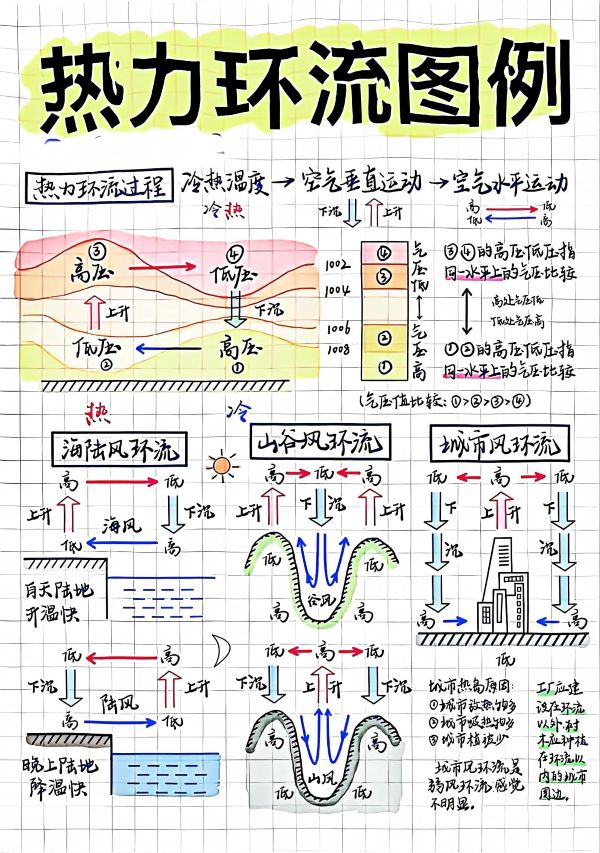 热力环流图例
热力环流过程 冷热温度→空气垂直运动→空气水平运动
冷热 下沉 上升 高 低
低 高
③ ④ 1002 ④ 气 ③④的高压低压指
高压 低压 1004 ③ 压 同一水平上的气压比较
低
上升 下沉 高处气压低
低处气压高
低压 高压 1006 ② 气 ①②的高压低压指
② ① 1008 ① 压 同一水平上的气压比较
高
热 冷 (气压值比较:①>②>③>④)
海陆风环流 山谷风环流 城市风环流
高 低 高 低 高 低 高 低
上升 海风 下沉 上升 下沉 上升 下沉 上升 下沉
低 高 低 低
白天陆地 谷风
升温快 高 高 高 高
低
低 高 低 高 低
下沉 陆风 上升 下沉 上升 下沉
高 低 高 高
晚上陆地 山风
降温快 低 低
城市热岛原因:
①城市放热物多
②城市吸热物多
③城市植被少
城市风环流是
弱风环流,感觉
不明显。
工厂应建
设在环流
以外,树
木应种植
在环流以
内的城市
周边。